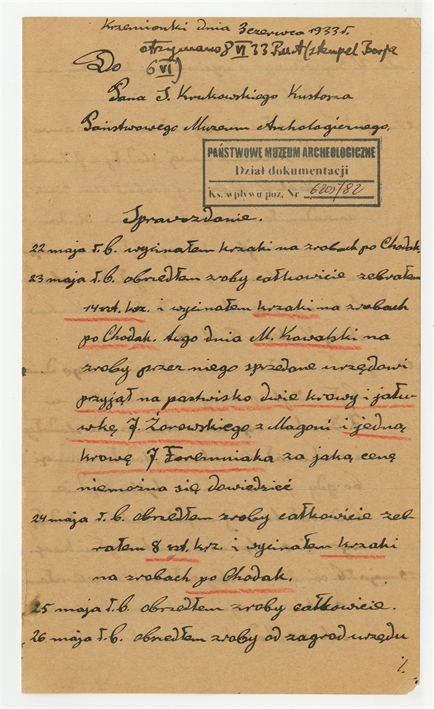 Krzemionki dnia 3 czerwca 1933 r.
otrzymano 8 VI 33 (stempel
6 VI)
Do
Pana S. Krukowskiego Kustosza
Państwowego Muzeum Archeologicznego.
PAŃSTWOWE MUZEUM ARCHEOLOGICZNE
Dział dokumentacji
Ks. wpływu poz. Nr 6209/82
Sprawozdanie.
22 maja t.b. wycinałem krzaki na zrobach po Chodak.
23 maja t.b. obszedłem zroby całkowicie zebrałem
14 szt. krz. i wycinałem krzaki na zrobach
po Chodak. tego dnia M. Kowalski na
zroby przez niego sprzedane urzędowi
przyjął na pastwisko dwie krowy i jału-
wkę J. Żorowskiego z Magoni i jedną
krowę J. za jaką cenę
niemożna się dowiedzieć
24 maja t.b. obszedłem zroby całkowicie zeb-
rałem 8 szt. krz. i wycinałem krzaki
na zrobach po Chodak.
25 maja t.b. obszedłem zroby całkowicie.
26 maja t.b. obszedłem zroby od zagrod urzędu